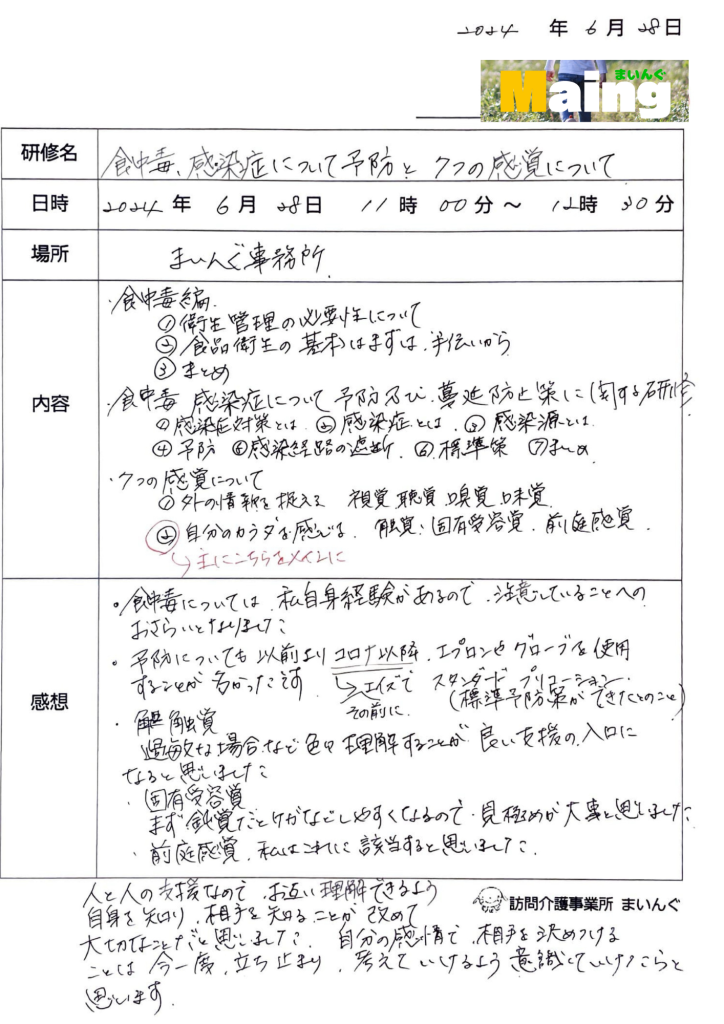 2024 年 6 月 28 日
まいんぐ
Maing
研修名 食中毒、感染症について予防と 7つの感覚について
日時 2024 年 6 月 28 日 11 時 00 分 ～ 12 時 30 分
場所 まいんぐ事務所
内容
・食中毒編
① 衛生管理の必要性について
② 食品衛生の基本はまずは、手伝いから
③ まとめ
・食中毒 感染症について 予防及び、蔓延防止策に関する研修
① 感染症対策とは ② 感染症とは、③ 感染源とは
④ 予防 ⑤ 感染経路の遮断 ⑥ 標準策 ⑦ まとめ
・7つの感覚について
① 外の情報を捉える 視覚 聴覚 嗅覚 味覚
② 自分のカラダを感じる 触覚、固有受容覚、前庭感覚
主にこちらをメインに
感想
・食中毒については、私自身経験があるので、注意していることへの
おさらいとなりました
・予防についても以前よりコロナ以降、エプロンやグローブを使用
することが多かったです エイズで スタンダード プリコーション
その前に (標準予防策ができたとのこと)
・触覚
過敏な場合など色々理解することが、良い支援の入口に
なると思いました
・固有受容覚
まず鈍覚だとケガなどしやすくなるので、見極めが大事と思いました
・前庭感覚、私はこれに該当すると思いました
人と人の支援なので、お互い理解できるよう
自身を知り、相手を知ることが改めて
大切なことだと思いました。自分の感情で、相手を決めつける
ことは今一度、立ち止まり、考えていけるよう意識していけたらと
思います。
訪問介護事業所 まいんぐ